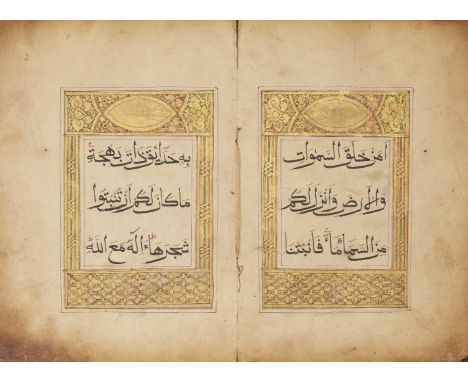 امن خلق السموات
والارض وانزل لكم
من السماء ماء فانبتنا
به حدائق ذات بهجة
ما كان لكم ان تنبتوا
شجرها ءاله مع الله